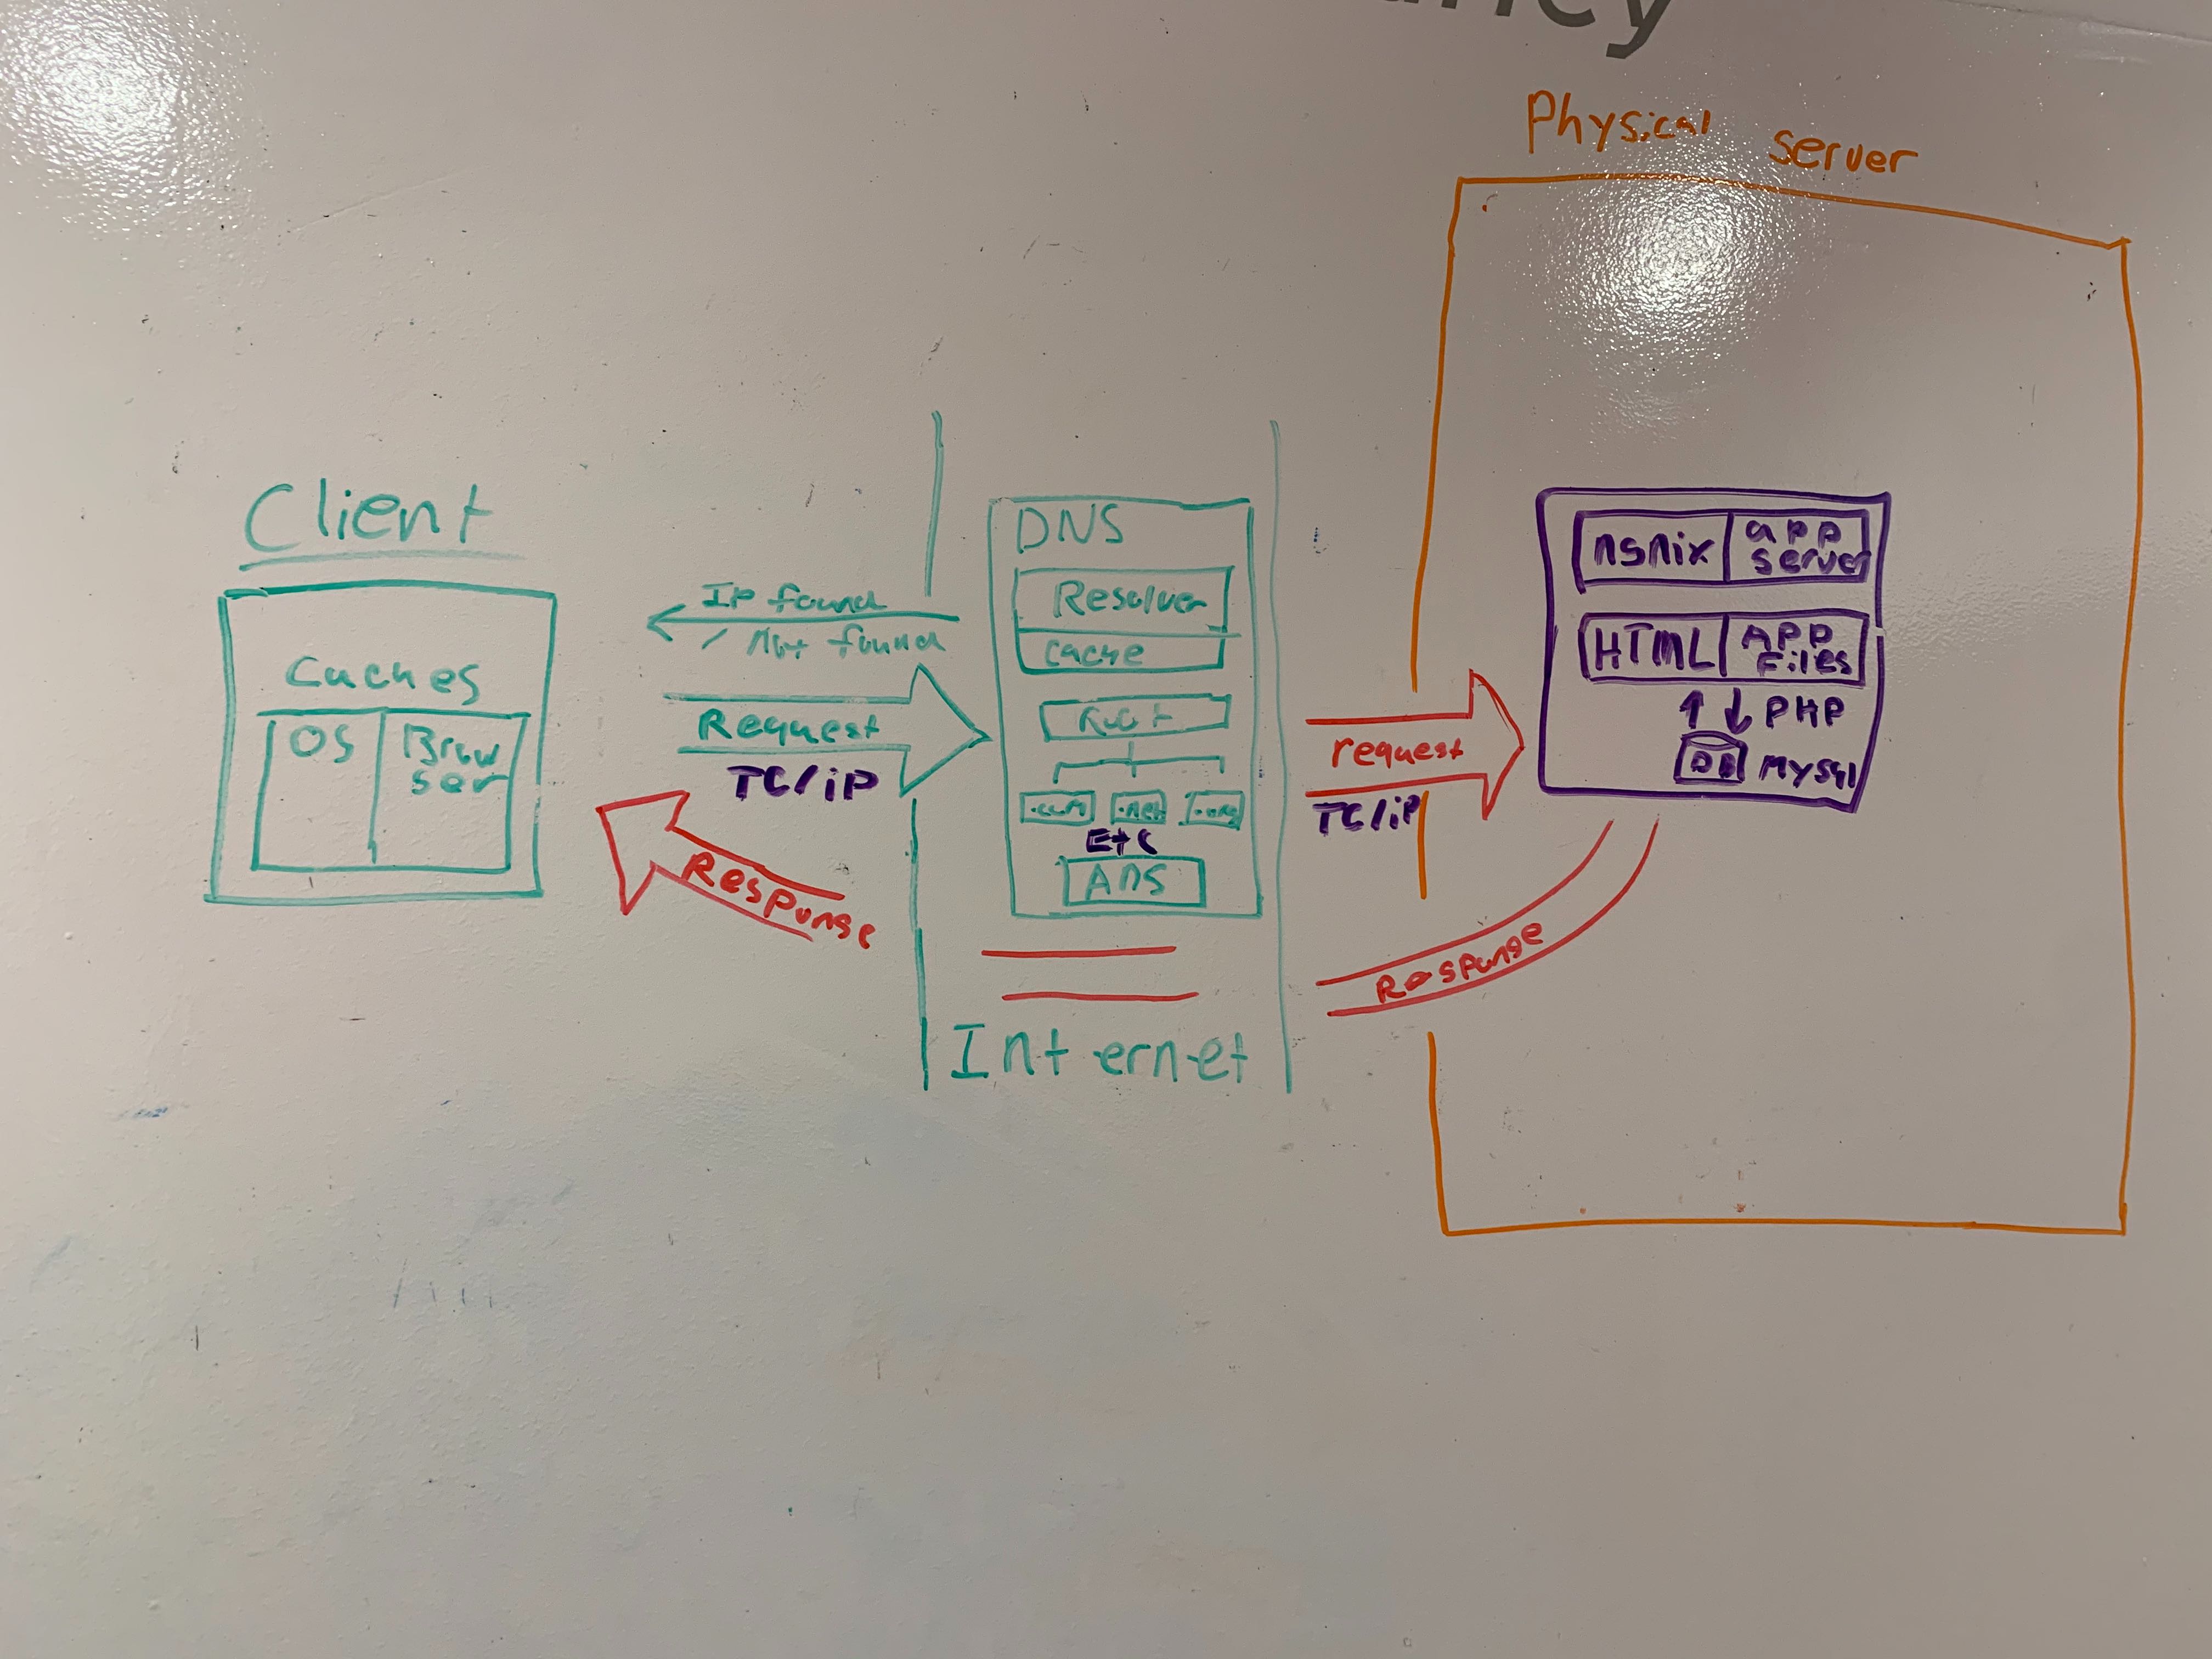 Physical server
Client
Caches
OS
Brow
ser
IP found
/ Not found
Request
TC/iP
Response
DNS
Resolver
cache
Root
.com
.net
.org
Etc
ANS
Internet
request
TC/iP
Response
nsnix
app
server
HTML
APP
Files
PHP
DB
Mysql